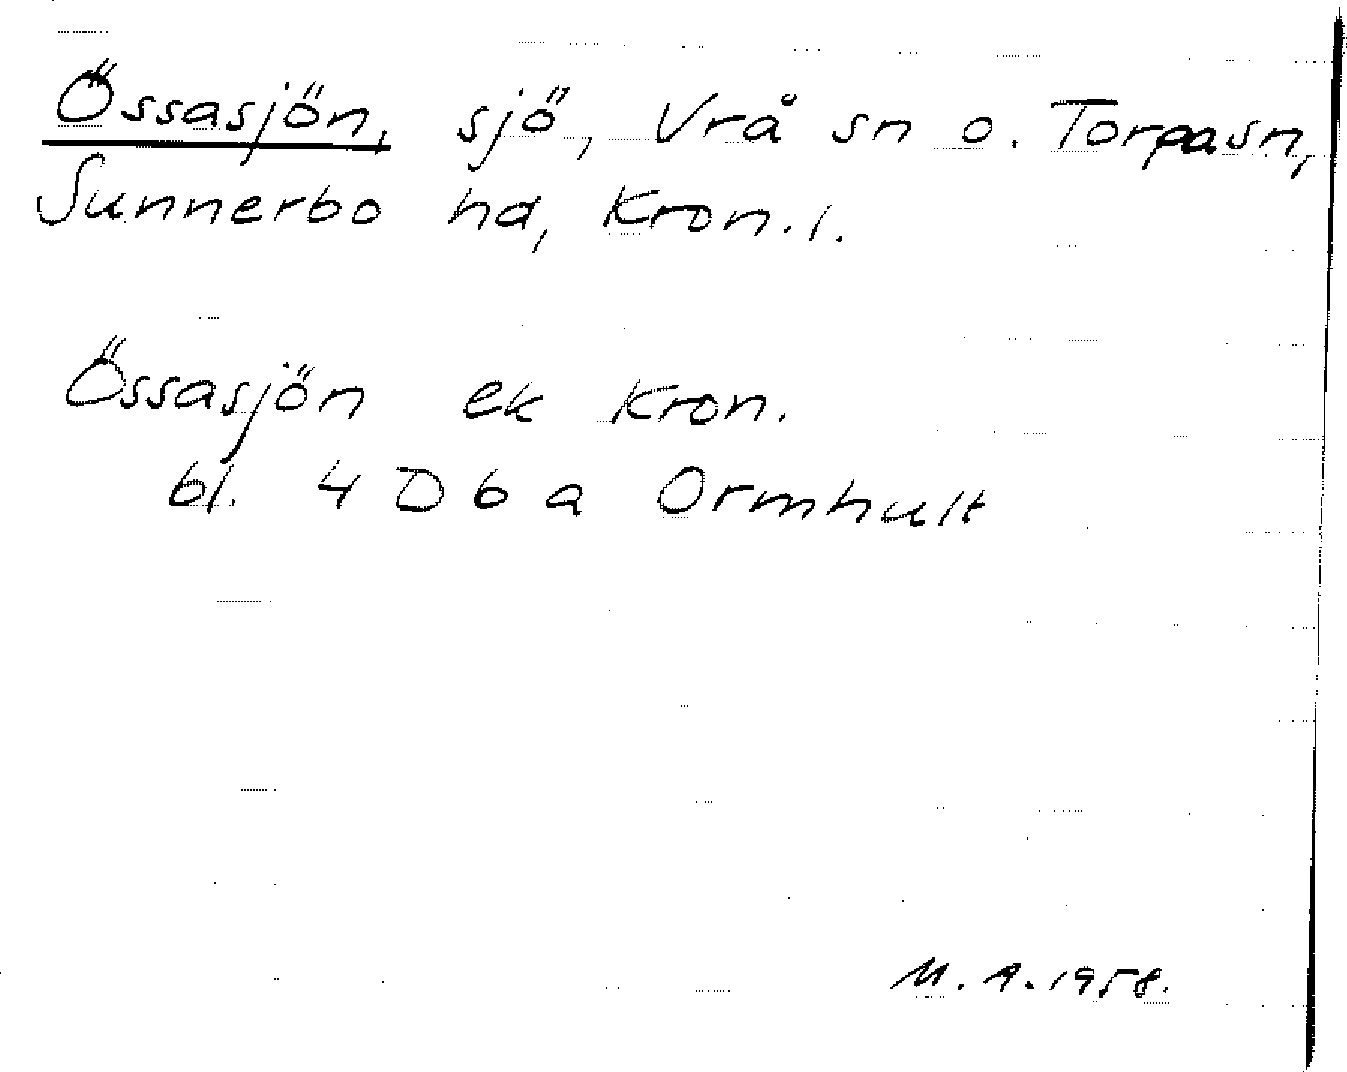 Össasjön, sjö, Vrå sn o. Torpasn,
Sunnerbo hd, Kron. l.
Össasjön ek Kron.
bl. 4 D 6 a Ormhult
M. A. 1958.